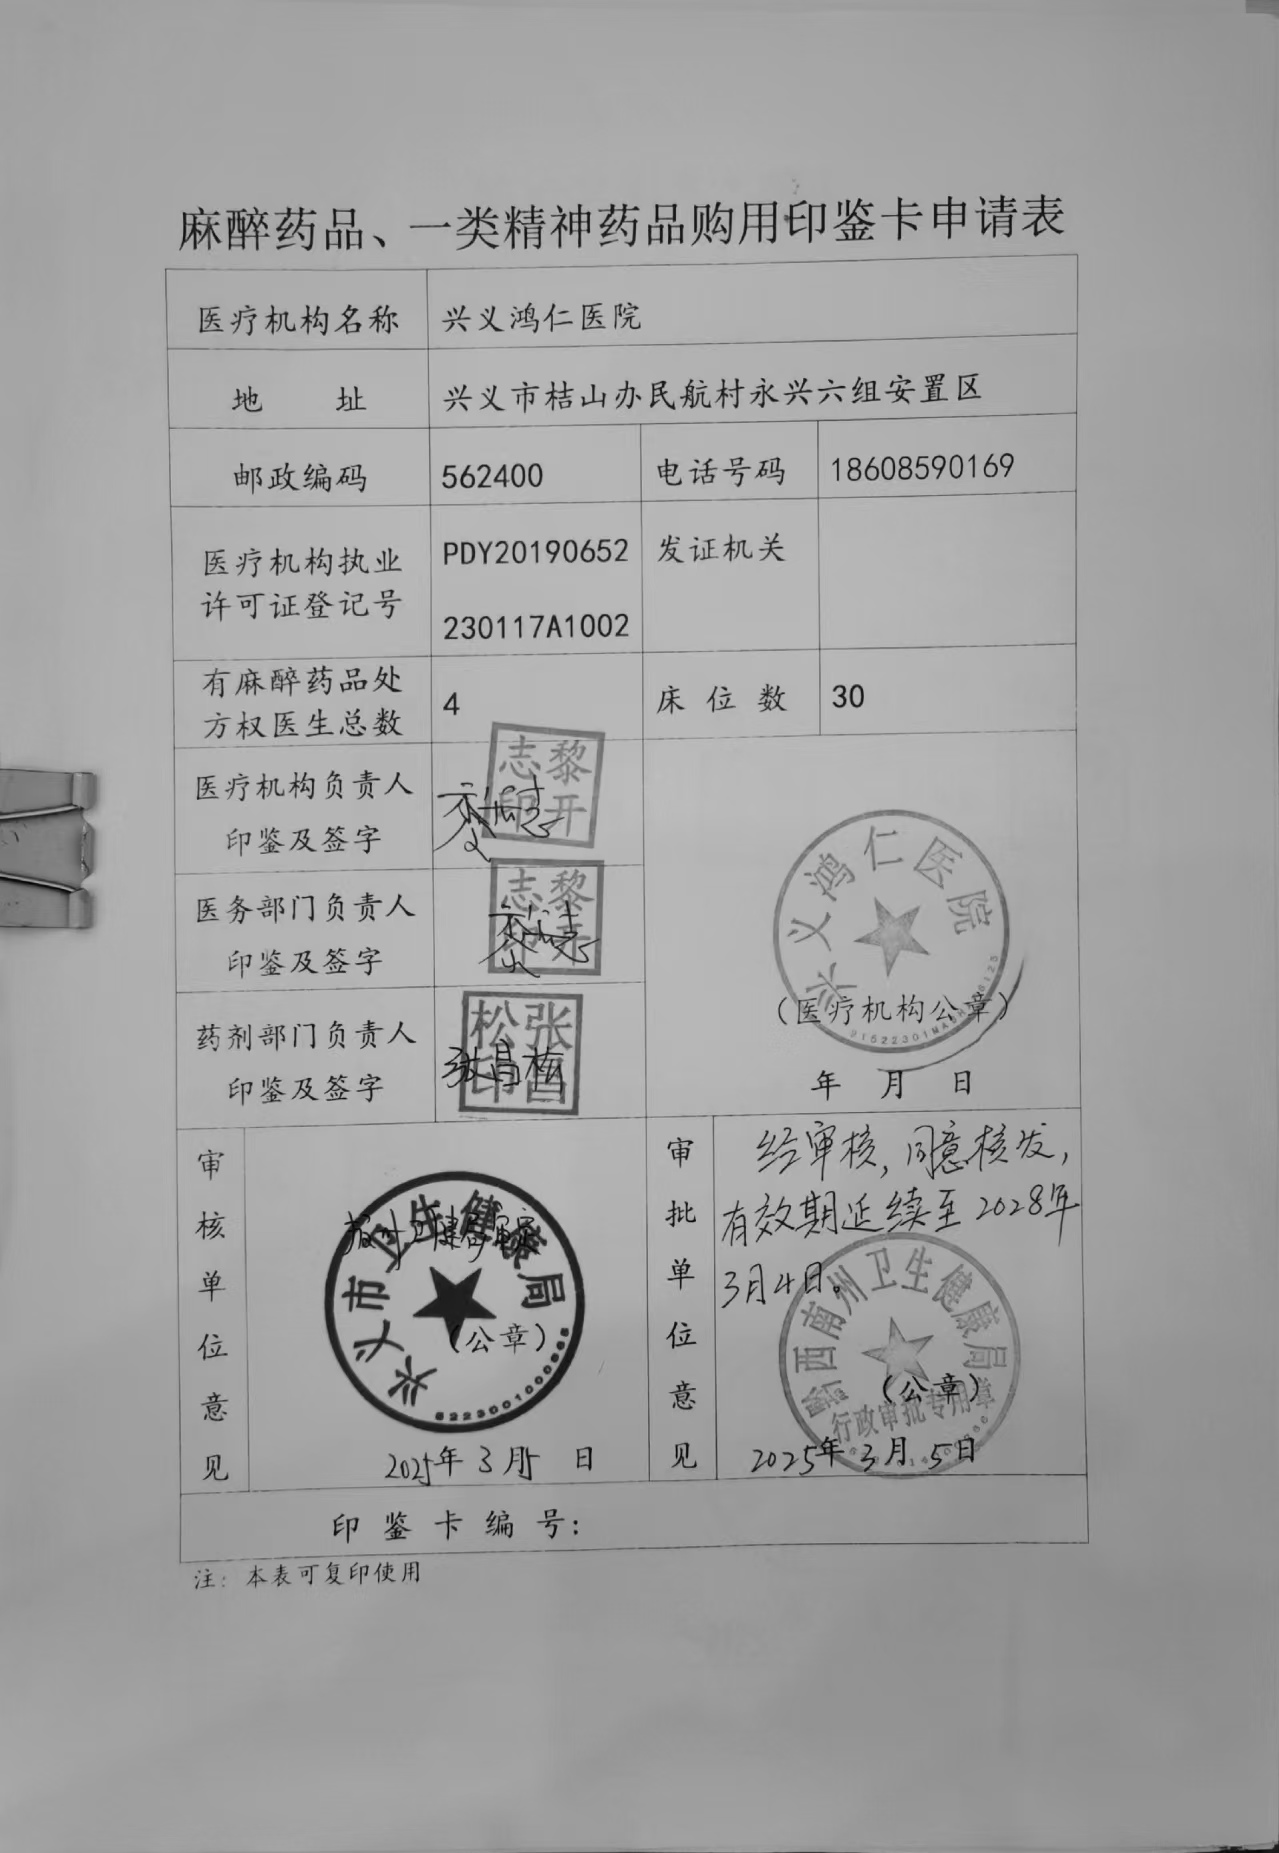 麻醉药品、一类精神药品购用印鉴卡申请表
医疗机构名称 兴义鸿仁医院
地 址 兴义市桔山办民航村永兴六组安置区
邮政编码 562400 电话号码 18608590169
医疗机构执业
许可证登记号
PDY20190652
230117A1002
发证机关
有麻醉药品处
方权医生总数
4
床位数 30
医疗机构负责人
印鉴及签字
黎开
志印
医务部门负责人
印鉴及签字
黎开
志印
药剂部门负责人
印鉴及签字
张昌
松印
张昌松
兴义鸿仁医院
(医疗机构公章)
年 月 日
审核单位意见
报州卫健局审定
兴义市卫生健康局
(公章)
2025年3月5日
审批单位意见
经审核,同意核发,
有效期延续至2028年
3月4日。
黔西南州卫生健康局
(公章)
行政审批专用章
2025年3月5日
印鉴卡编号:
注:本表可复印使用